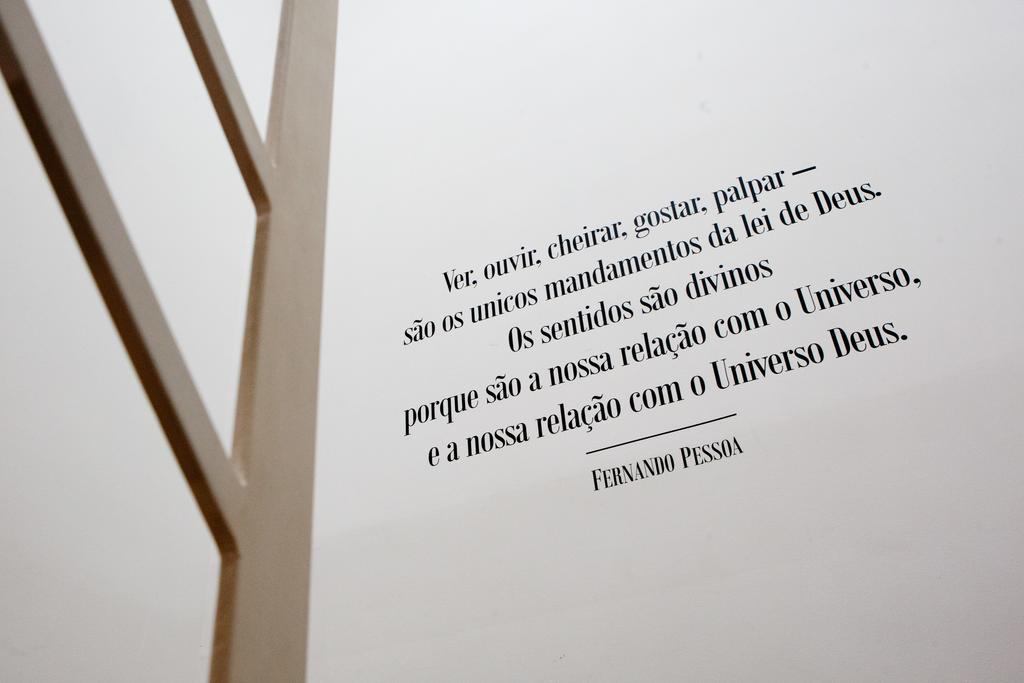 Ver, ouvir, cheirar, gostar, palpar —
são os unicos mandamentos da lei de Deus.
Os sentidos são divinos
porque são a nossa relação com o Universo,
e a nossa relação com o Universo Deus.
FERNANDO PESSOA